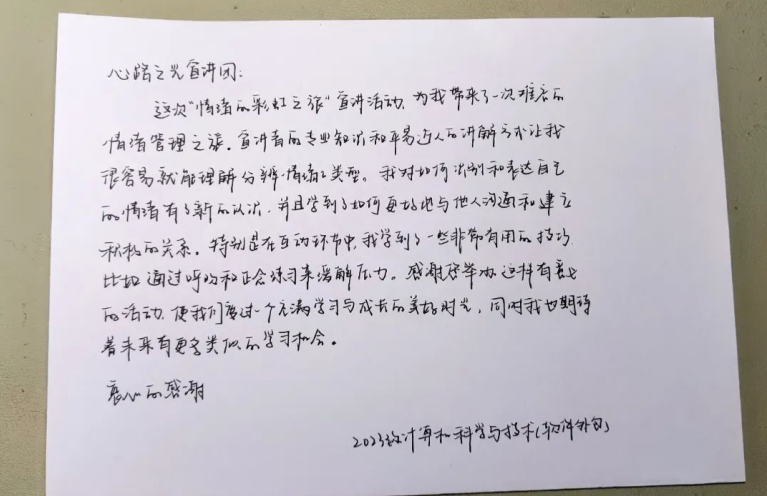 心路之光宣讲团：
这次“情绪的彩虹之旅”宣讲活动，为我带来了一次难忘的
情绪管理之旅。宣讲者的专业知识和平易近人的讲解方式让我
很容易就能理解分辨情绪类型。我对如何识别和表达自己
的情绪有了新的认识，并且学到了如何更好地与他人沟通和建立
积极的关系。特别是在互动环节中，我学到了一些非常有用的技巧，
比如通过呼吸和正念练习来缓解压力。感谢您举办这样有意义
的活动，使我们度过一个充满学习与成长的美好时光，同时我也期待
着未来有更多类似的学习机会。
衷心的感谢
2023级计算机科学与技术（软件外包）